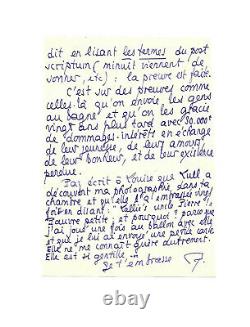 dit en lisant les termes du post
scriptum (minuit viennent de
sonner, etc) : la preuve est faite.
C'est sur des preuves comme
celles-là qu'on envoie, les gens
au bagne et qu'on les gracie
vingt ans plus tard avec 50.000f
de dommages-intérêts en échange
de leur jeunesse, de leur amour,
de leur bonheur, et de leur existence
perdue.
J'ai écrit à Louise que
découvert ma photographie dans ta
chambre et qu'elle l'a embrassée vingt
fois en disant: "
pauvre petite; et pourquoi? parce que
j'ai joué une fois au ballon avec elle
et que je lui ai envoyé une petite carte
Elle ne me connaît guère autrement.
Elle est si gentille
Je t'embrasse
ebay